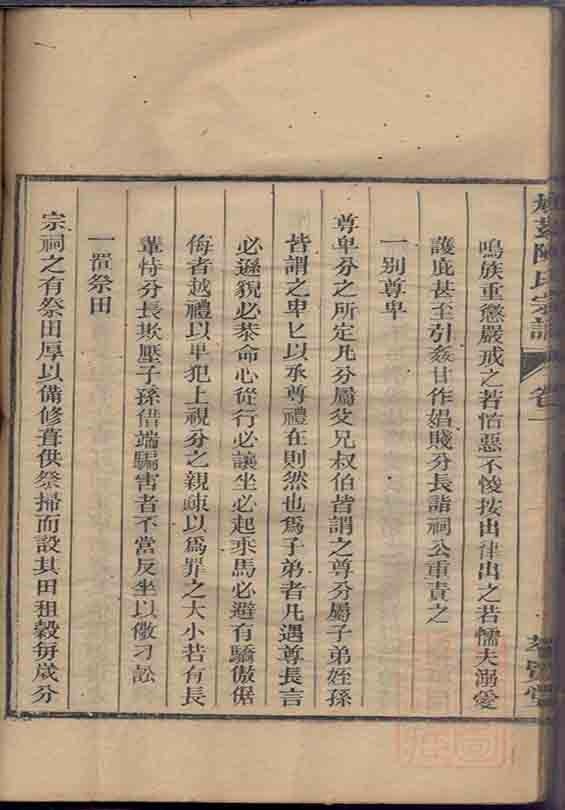 陳氏宗譜 卷一
鳴族重懲嚴戒之若怙惡不悛按出律出之若懦夫溺愛
護庇甚至引姦甘作娼賤分長詣祠公重責之
一別尊卑
尊卑分之所定凡分屬父兄叔伯皆謂之尊分屬子弟姪孫
皆謂之卑匕以承尊禮在則然也為子弟者凡遇尊長言
必遜貌必恭命心從行必讓坐必起乘馬必避有驕傲倨
侮者越禮以卑犯上視分之親疎以為罪之大小若有長
輩恃分長欺壓子孫借端騙害者不當反坐以儆刁訟
一置祭田
宗祠之有祭田厚以備修葺供祭掃而設其田租穀每歲分